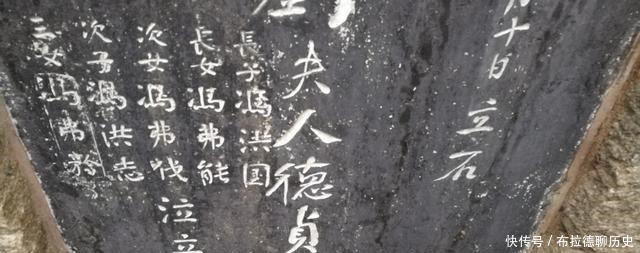 十日立石
夫人德貞
長子馮洪国
長女馮弗能
次女馮弗伐
次子馮洪志
三女馮弗矜
泣立
快传号／布拉德聊历史